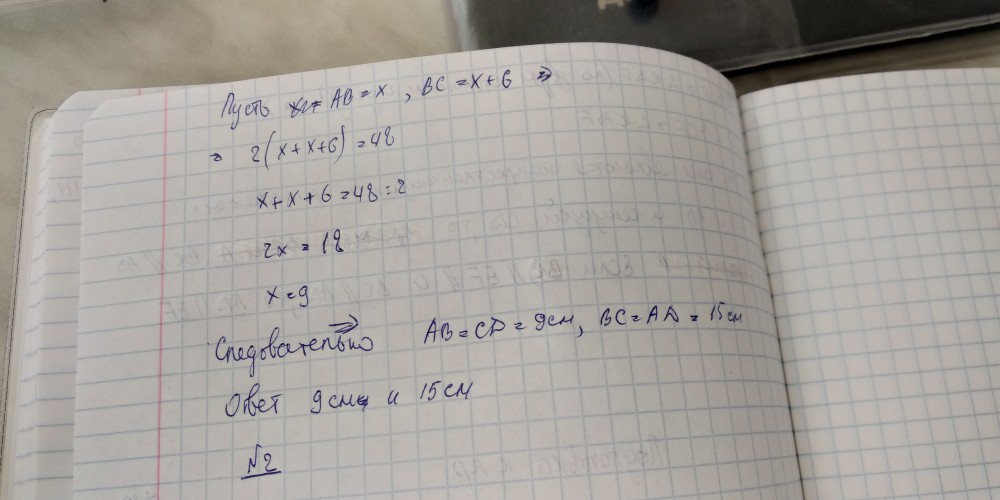 Пусть AB = x , BC = x + 6 ⇒
⇒ 2(x + x + 6) = 48
x + x + 6 = 48 : 2
2x = 18
x = 9
Следовательно ⇒ AB = CD = 9 см, BC = AD = 15 см
Ответ 9 см и 15 см
№2